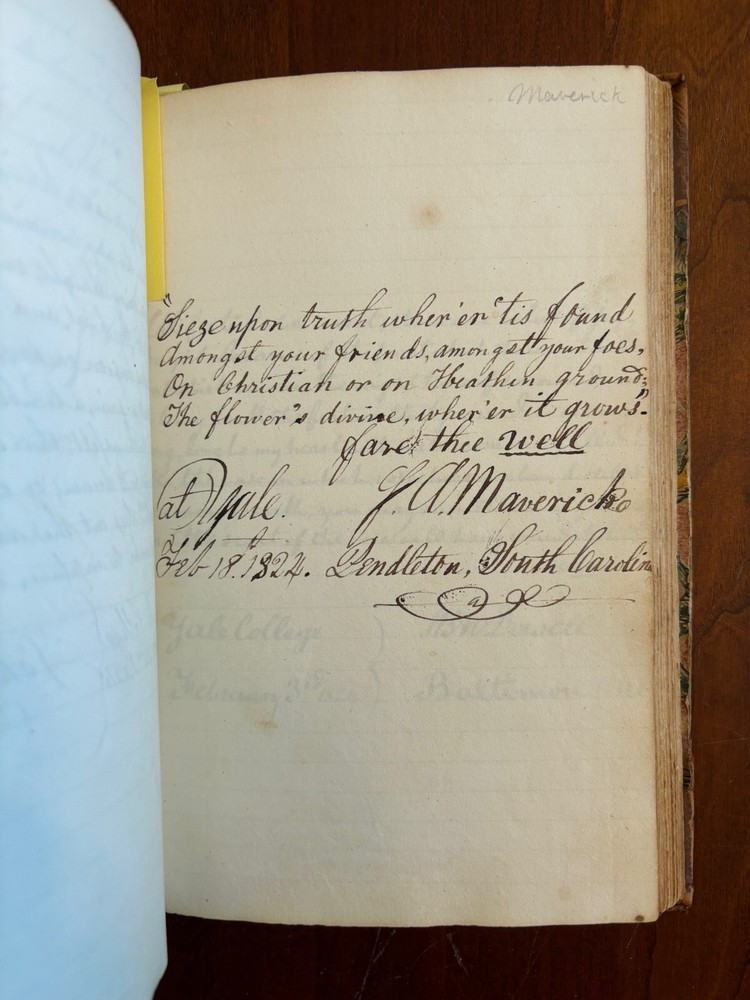 Maverick
"Sieze upon truth wher'er 'tis found
Amongst your friends, amongst your foes,
On Christian or on Heathen ground;
The flower's divine, wher'er it grows"-
fare thee well
at Yale. J. A. Maverick
Feb 18th. 1824. Pendleton, South Carolina
Yale College
February 3rd Baltimore